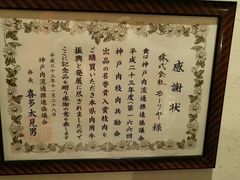 感謝状
株式会社 モーリヤ 様
貴社は神戸肉流通推進協議会
平成二十三年度第一六六回
神戸肉枝肉共励会
出品の名誉賞入賞枝肉を
ご購買いただき本県肉用牛
振興と発展に尽されました
ここに記念品を贈り感謝の意を表します
平成二十三年十一月二十八日
神戸肉流通推進協議会
会長 喜多太見男